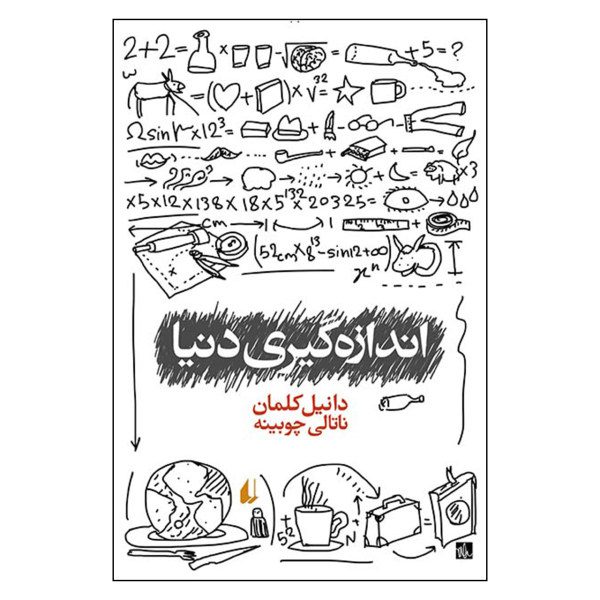 2+2= × - √ +5=?
=( + )×√³²= ×
Ωsin r×12³= + - × =
×3
×5×12×138×18×5¹³²×20325= →
cm 1 1 +
(52cm×8¹³-sin12+∞)
xⁿ
اندازه‌گیری دنیا
دانیل کلمان
ناتالی چوبینه
52 + N + =